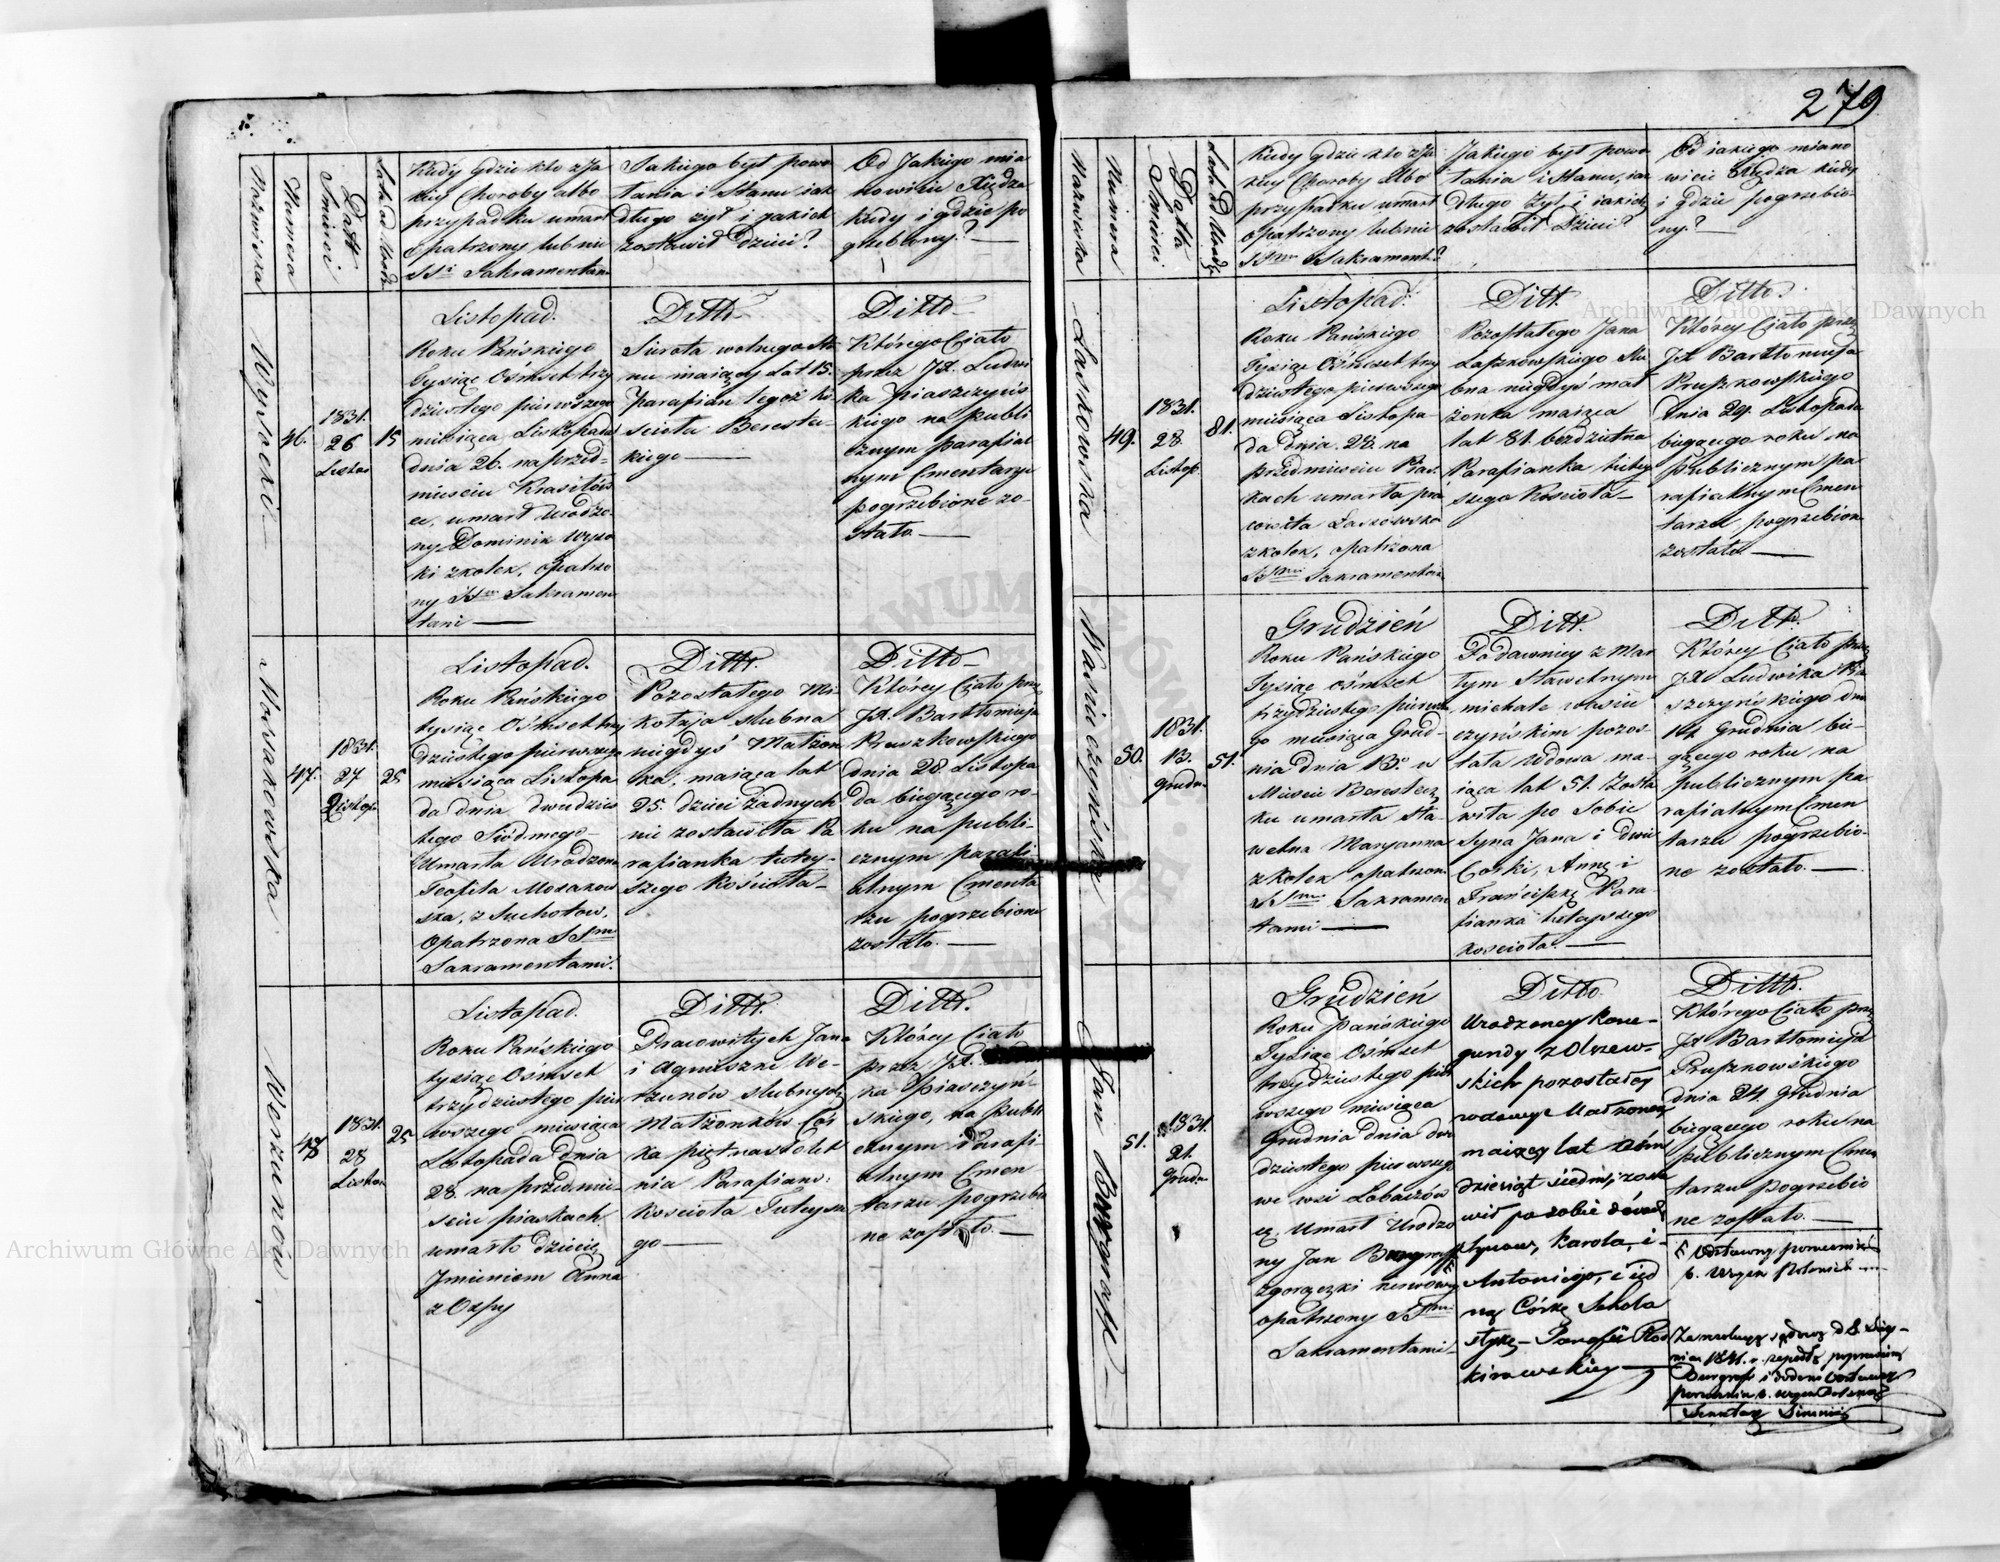 279
Nazwiska
Numera
Data
Smierci
Lata od Urodz.
Kiedy gdzie kto z Ja
kiey Choroby albo
przypadku umarł
opatrzony lub nie
SSi Sakramentami
Jakiego był powo
łania i stanu iak
długo żył i jakich
zostawił Dzieci?
Od Jakiego mia
nowicie Xiędza
kiedy i gdzie po
grzebiony?
Wysocki
46.
1831.
26
Listop
15
Listopad.
Roku Pańskiego
Tysiąc Ośmset trzy
dziestego pierwszego
miesiąca Listopada
dnia 26. na przed-
mieściu Krasiłów
ce, umarł Urodzo
ny Dominik Wyso
ki z kolek, opatrzo
ny SSmi Sakramen
tami
Ditto
Sierota wolnego Sta
nu maiący Lat 15.
Parafian tegoż Ko
ścioła Bereste-
kiego
Ditto
Którego Ciało
przez JX. Ludwi
ka Piaszczyńs
kiego na publi
cznym parafial
nym Cmentarzu
pogrzebione zo-
stało.
Mosakowska
47.
1831.
27
Listop.
25
Listopad.
Roku Pańskiego
tysiąc Ośmset trzy
dziestego pierwszego
miesiąca Listopa
da dnia dwudzies
tego Siódmego
Umarła Urodzona
Teofila Mosakow
ska, z Suchotow,
opatrzona SSmi
Sakramentami.
Ditto.
Pozostałego Mi
kołaja slubna
niegdyś Małżon
ka, maiąca lat
25. dzieci żadnych
nie zostawiła Pa
rafianka tutey-
szego kościoła
Ditto
Którey Ciało przez
JX. Bartłomieja
Pruszkowskiego
dnia 28. Listopa
da bieżącego ro-
ku na publi-
cznym parafi
alnym Cmenta
rzu pogrzebione
zostało.
Worzunow
48
1831.
28
Listop
25
Listopad.
Roku Pańskiego
tysiąc Ośmset
trzydziestego pier
wszego miesiąca
Listopada dnia
28. na przedmie
ściu piaskach
umarło dziecię
Jmieniem Anna
z Ospy
Ditto.
Pracowitych Jana
i Agnieszki Wo-
rzunów slubnych
Małżonków Cór
ka piętnasto let
nia Parafiano:
kościoła Tuteysze
go
Ditto.
Którey Ciało
przez JX.
ka Piasczyń-
skiego, na publi
cznym Parafi
alnym Cmen
tarzu pogrzebio
ne zostało.
Nazwiska
Numera
Datta
Smierci
Lata od Urodz.
Kiedy gdzie kto z Ja
kiey Choroby Albo
przypadku umarł
opatrzony lub nie
SSmi Sakrament?
Jakiego był powo
łania i Stanu, iak
Długo żył i iakich
zostawił Dzieci?
Od iakiego miano
wicie Xiędza kiedy
i gdzie pogrzebio-
ny?
Laskowska
49.
1831.
28
Listop.
81.
Listopad.
Roku Pańskiego
Tysiąc Ośmset trzy
dziestego pierwszego
miesiąca Listopa-
da Dnia 28. na
przedmieściu Pias
kach umarła pra
cowita Laskowska
z kolek, opatrzona
SSmi Sakramentami
Ditt.
Pozostałego Jana
Laskowskiego slu
bna niegdyś mał
żonka maiąca
lat 81. bezdzietna
Parafianka tutey
szego kościoła
Ditto.
Którey Ciało przez
JX Bartłomieja
Pruszkowskiego
Dnia 29. Listopada
bieżącego roku na
Publicznym pa
rafialnym Cmen
tarzu, pogrzebione
zostało
50.
1831.
13.
grudn.
51.
Grudzień
Roku Pańskiego
Tysiąc ośmset
trzydziestego pierwsze
go miesiąca Grud-
nia dnia 13. w
Mieście Berestecz
ku umarła Sła-
wetna Maryanna
z kolek opatrzona
SSmi Sakramen
tami
Ditt.
Podawnicy z Mar
tym Sławetnym
Michale
czyńskim pozos-
tała Wdowa ma-
iąca lat 51. Zosta
wiła po Sobie
Syna Jana i dwie
Corki, Annę i
Franciszkę Para-
fianka tutejszego
kościoła.
Ditt.
Którey Ciało przez
JX Ludwika Pia
szczyńskiego dnia
14 Grudnia bie-
żącego roku na
publicznym pa
rafialnym Cmen
tarzu pogrzebio-
ne zostało.
Jan Burgraff
51.
1831.
21.
Grudn
Grudzień
Roku Pańskiego
Tysiąc Ośmset
trzydziestego pier
wszego miesiąca
Grudnia dnia dwu
dziestego pierwszego
we wsi Lobaczów
ce, Umarł Urodzo
ny Jan Burgraff
z gorączki nerwowey
opatrzony SSmi
Sakramentami
Ditto.
Urodzoney Kune-
gundy z Olszew-
skich pozostałey
wdowye Małżonek
maiący lat ośm
dziesiąt siedm, zosta
wił po sobie dwóch
Synow, Karola, i
Antoniego, i ied
ną Córkę Schola
stykę Parafii
Ditto.
Którego Ciało przez
JX Bartłomieja
Pruszkowskiego
dnia 24 Grudnia
bieżącego roku na
publicznym Cmen
tarzu pogrzebio
ne zostało.
Archiwum Główne Akt Dawnych
Archiwum Główne Akt Dawnych